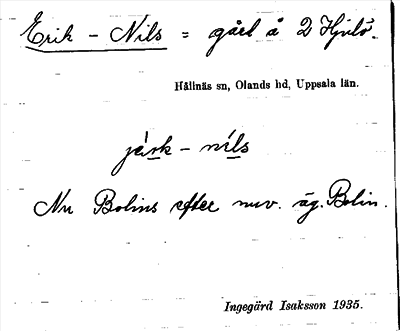 Erik - Nils = gård å 2 Hjälö.
Hållnäs sn, Olands hd, Uppsala län.
nils
Nu Bolins efter nuv. äg. Bolin.
Ingegärd Isaksson 1935.